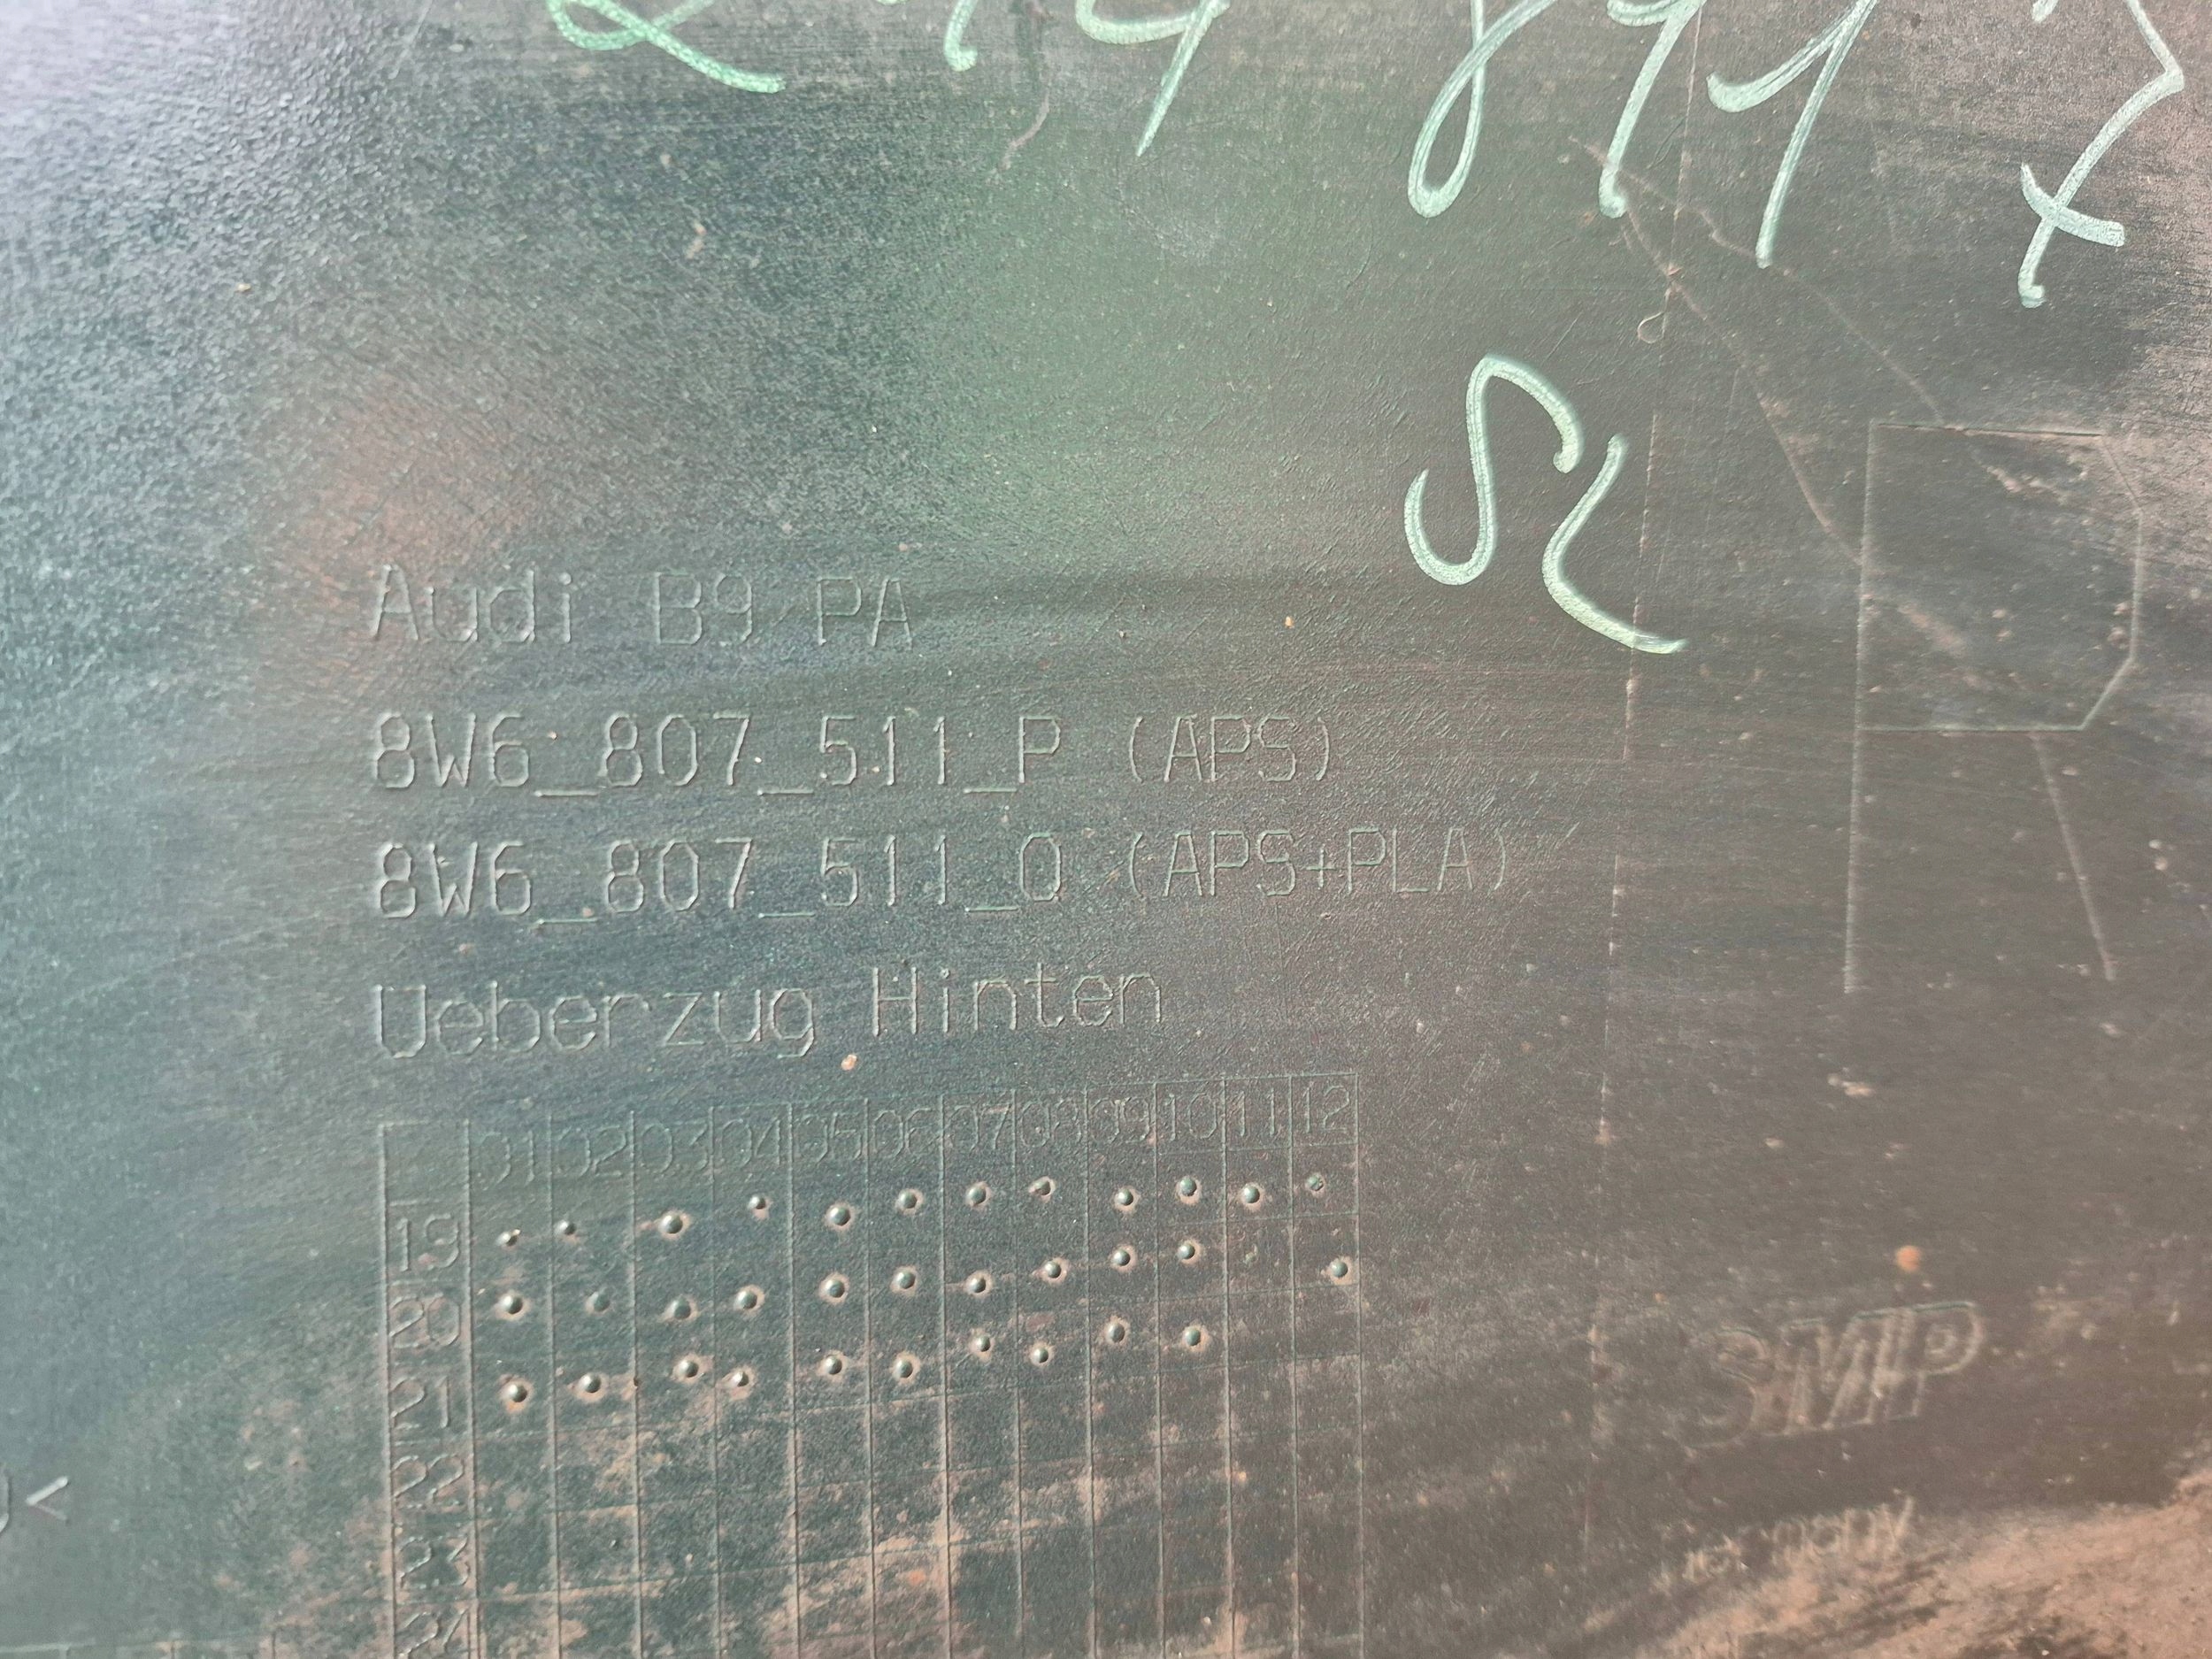 Audi B9 PA
8W6_807_511_P (APS)
8W6_807_511_Q (APS+PLA)
Ueberzug Hinten
01 02 03 04 05 06 07 08 09 10 11 12
19
20
21
22
23
24
R
SMP
Germany